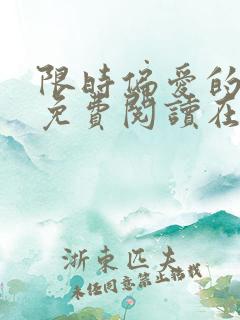 限時偏愛的
免費閱讀在
浙東匹夫
未經同意禁止轉載